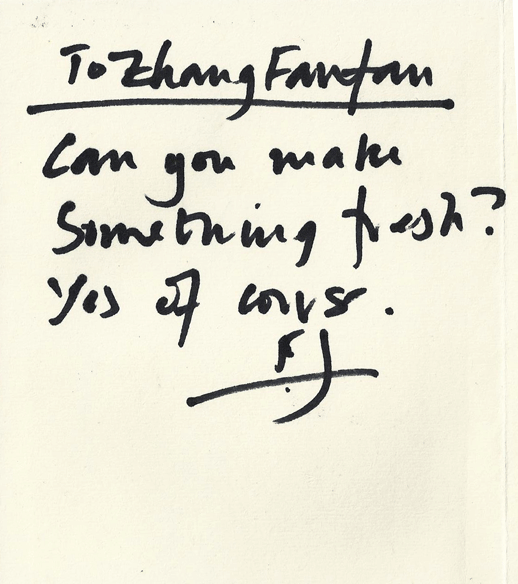 To Zhang Fanfan
Can you make
Something fresh?
Yes of course.
FJ